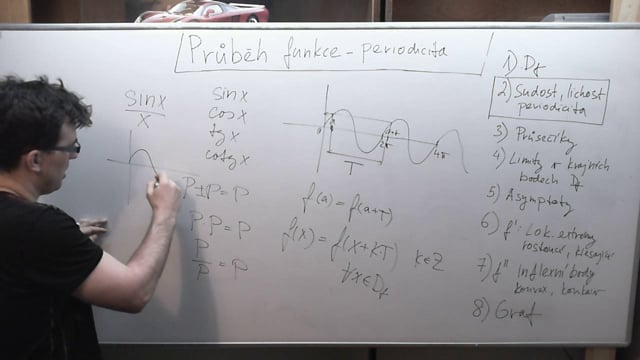 Průběh funkce - periodicita
sin x
x
sin x
cos x
tg x
cotg x
P ± P = P
P · P = P
P
P
= P
T
2π
4π
f(a) = f(a+T)
f(x) = f(x+kT) k∈Z
∀x∈Df
1) Df
2) Sudost, lichost
periodicita
3) Průsečíky
4) Limity v krajních
bodech Df
5) Asymptoty
6) f': Lok. extrémy
rostoucí, klesající
7) f'' inflexní body
konvex, konkáv
8) Graf